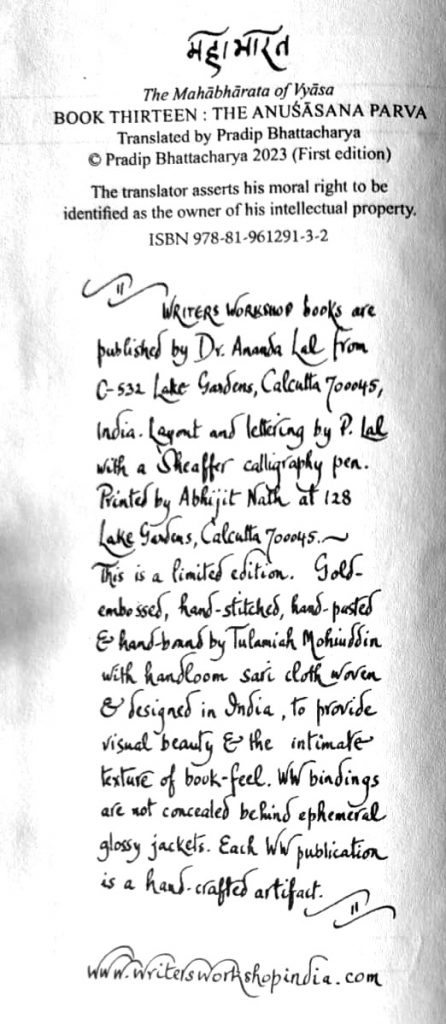 महाभारत
The Mahābhārata of Vyāsa
BOOK THIRTEEN : THE ANUŚĀSANA PARVA
Translated by Pradip Bhattacharya
© Pradip Bhattacharya 2023 (First edition)
The translator asserts his moral right to be
identified as the owner of his intellectual property.
ISBN 978-81-961291-3-2
WRITERS WORKSHOP books are
published by Dr. Ananda Lal from
C-532 Lake Gardens, Calcutta 700045,
India. Layout and lettering by P. Lal
with a Sheaffer calligraphy pen.
Printed by Abhijit Nath at 128
Lake Gardens, Calcutta 700045.
This is a limited edition. Gold-
embossed, hand-stitched, hand-pasted
& hand-bound by Tulamiah Mohiuddin
with handloom sari cloth woven
& designed in India, to provide
visual beauty & the intimate
texture of book-feel. WW bindings
are not concealed behind ephemeral
glossy jackets. Each WW publication
is a hand-crafted artifact.
www.writersworkshopindia.com